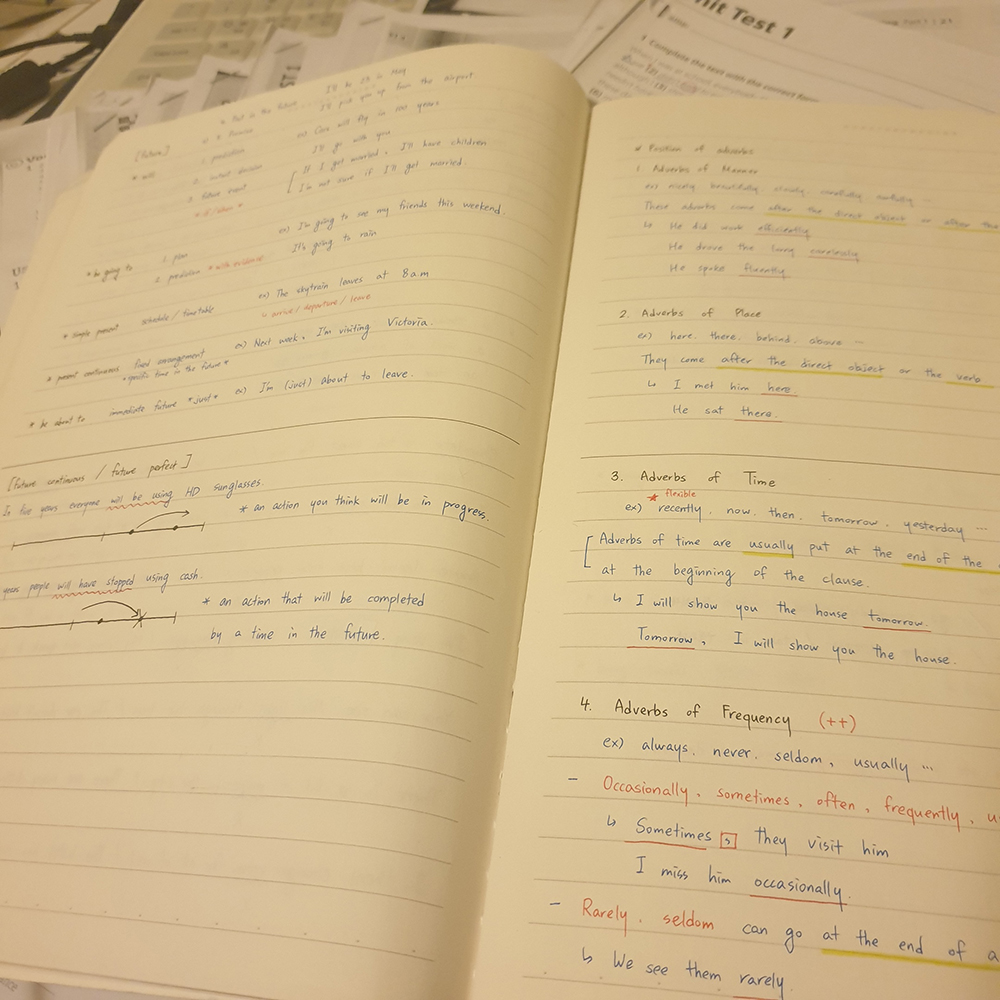 Unit Test 1
1 Complete the text with the correct form
I'll be 23 in May
* But in the future
I'll pick you up from the airport.
[future]
* will
1. prediction
ex) Cars will fly in 100 years
2. instant decision
I'll go with you
3. future event
If I get married, I'll have children
* if / when *
I'm not sure if I'll get married.
* be going to
1. plan
ex) I'm going to see my friends this weekend.
2. prediction * with evidence
It's going to rain
* simple present
schedule / timetable
ex) The skytrain leaves at 8 a.m
↳ arrive / departure / leave
* present continuous
fixed arrangement
ex) Next week, I'm visiting Victoria.
* specific time in the future *
* be about to
immediate future * just *
ex) I'm (just) about to leave.
[future continuous / future perfect]
In five years everyone will be using HD sunglasses.
* an action you think will be in progress.
years people will have stopped using cash.
* an action that will be completed
by a time in the future.
* Position of adverbs
1 Adverbs of Manner
ex) nicely, beautifully, slowly, carefully
These adverbs come after the direct object or after the
↳ He did work efficiently
He drove the
He spoke fluently
2. Adverbs of Place
ex) here, there, behind, above ...
They come after the direct object or the verb
↳ I met him here.
He sat there.
3. Adverbs of Time
★ flexible
ex) recently, now, then, tomorrow, yesterday ...
Adverbs of time are usually put at the end of the
at the beginning of the clause.
↳ I will show you the house tomorrow.
Tomorrow, I will show you the house.
4. Adverbs of Frequency (++)
ex) always, never, seldom, usually ...
- Occasionally, sometimes, often, frequently, u
↳ Sometimes, they visit him
I miss him occasionally.
- Rarely, seldom can go at the end of a
↳ We see them rarely.